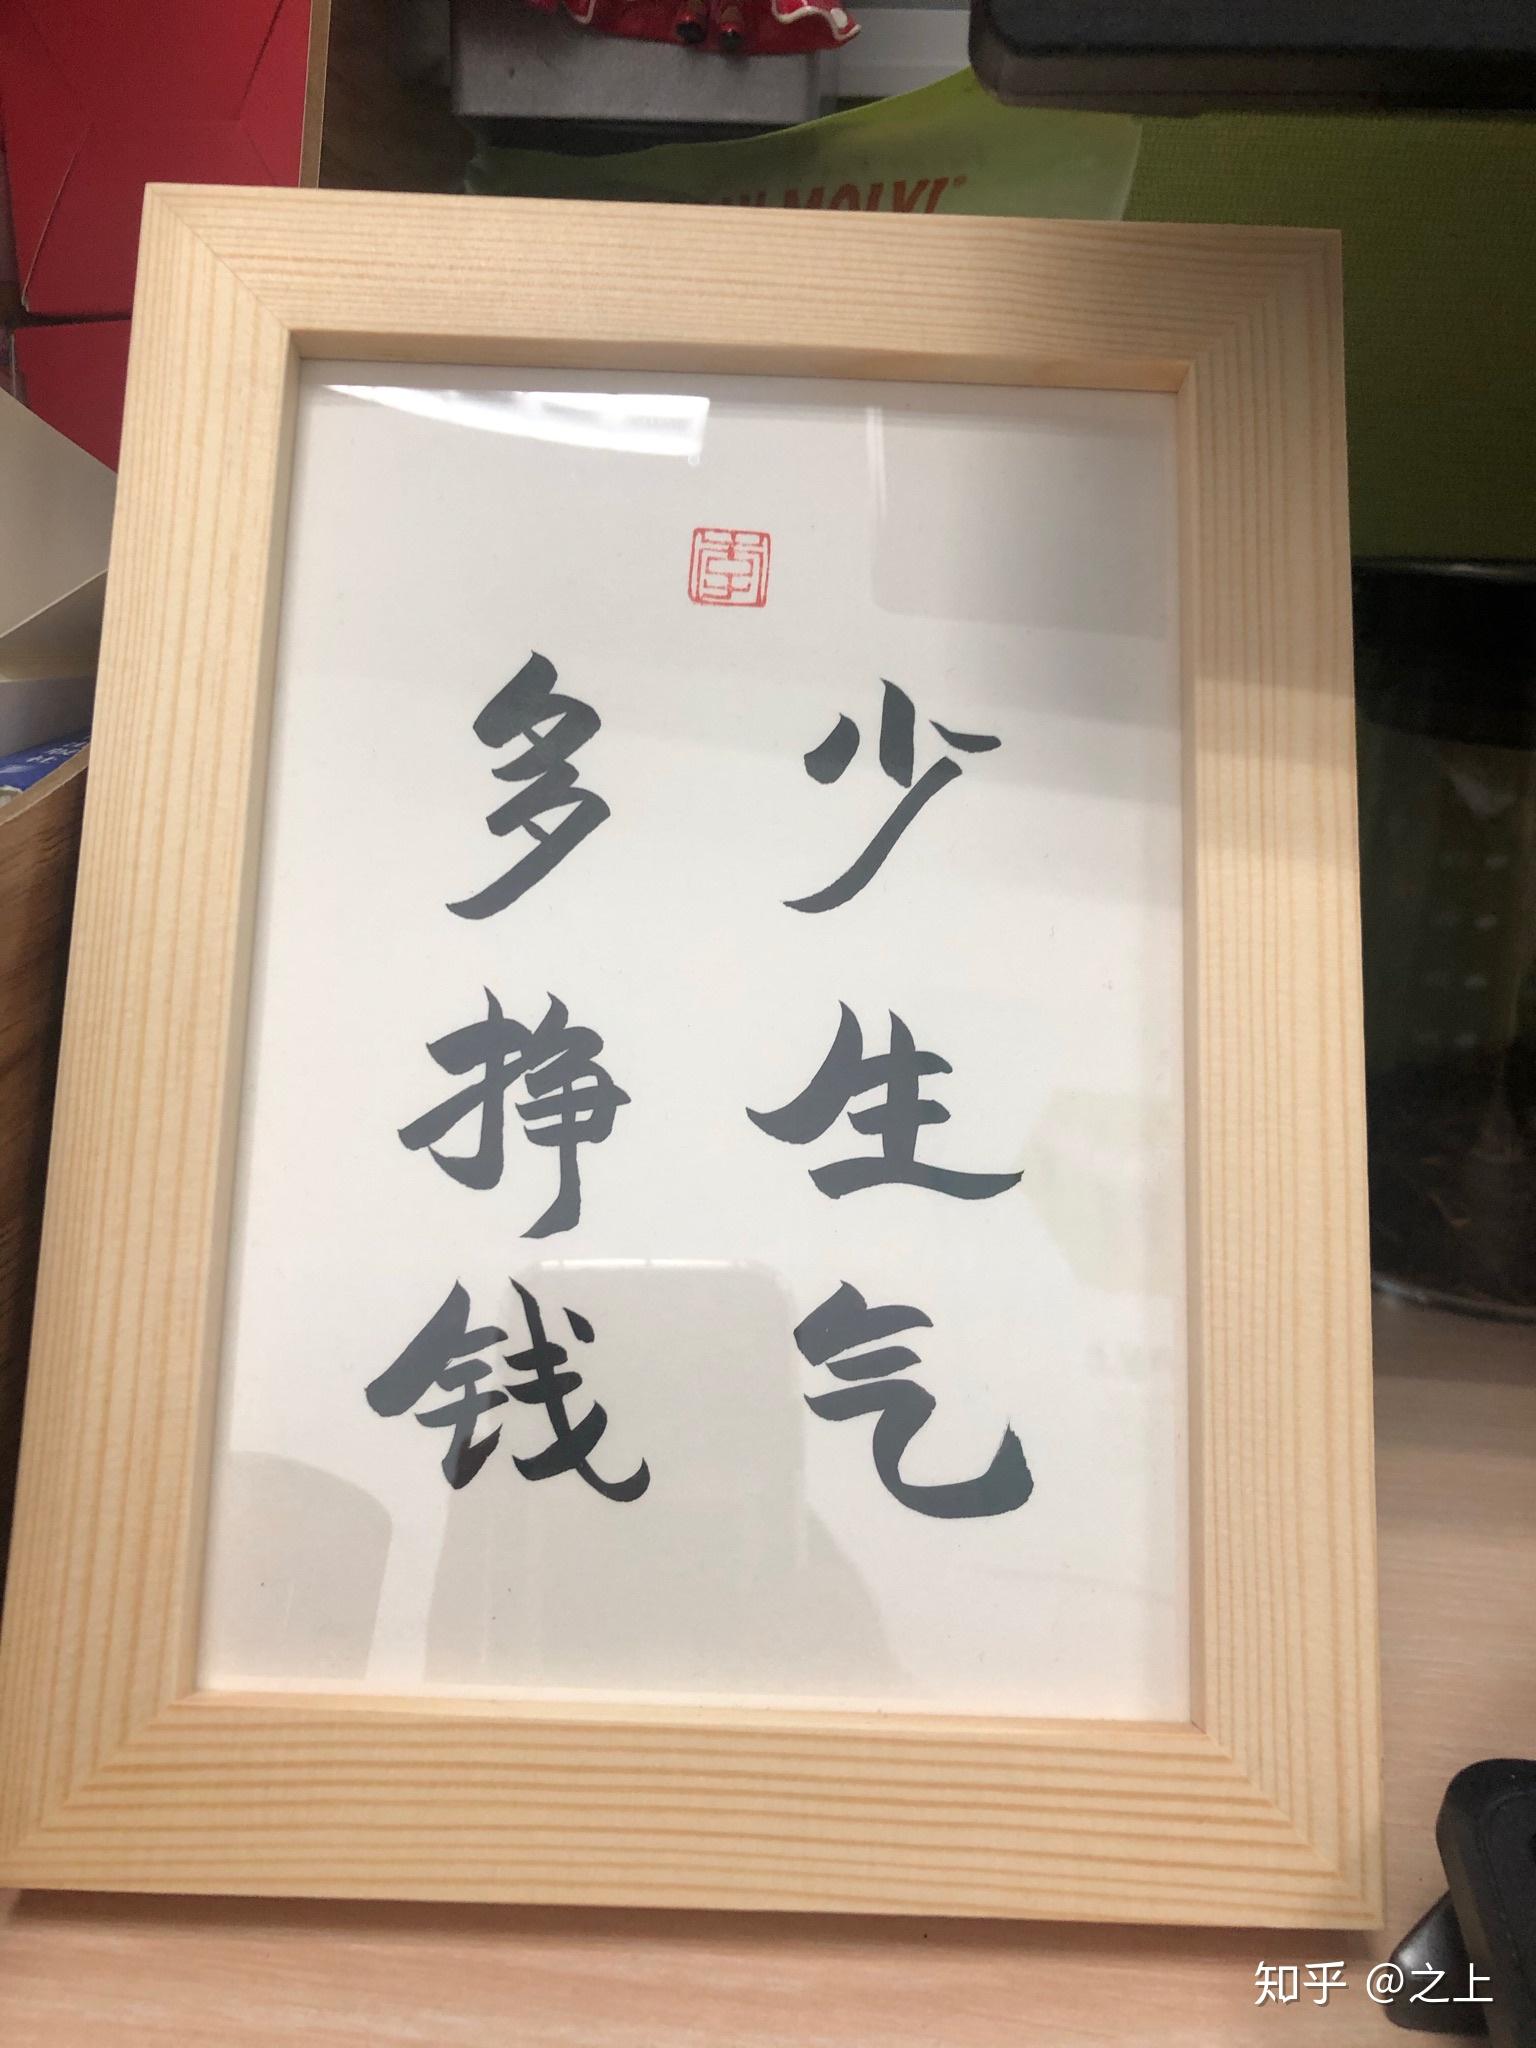 MOLY!
少生气
多挣钱
知乎 @之上